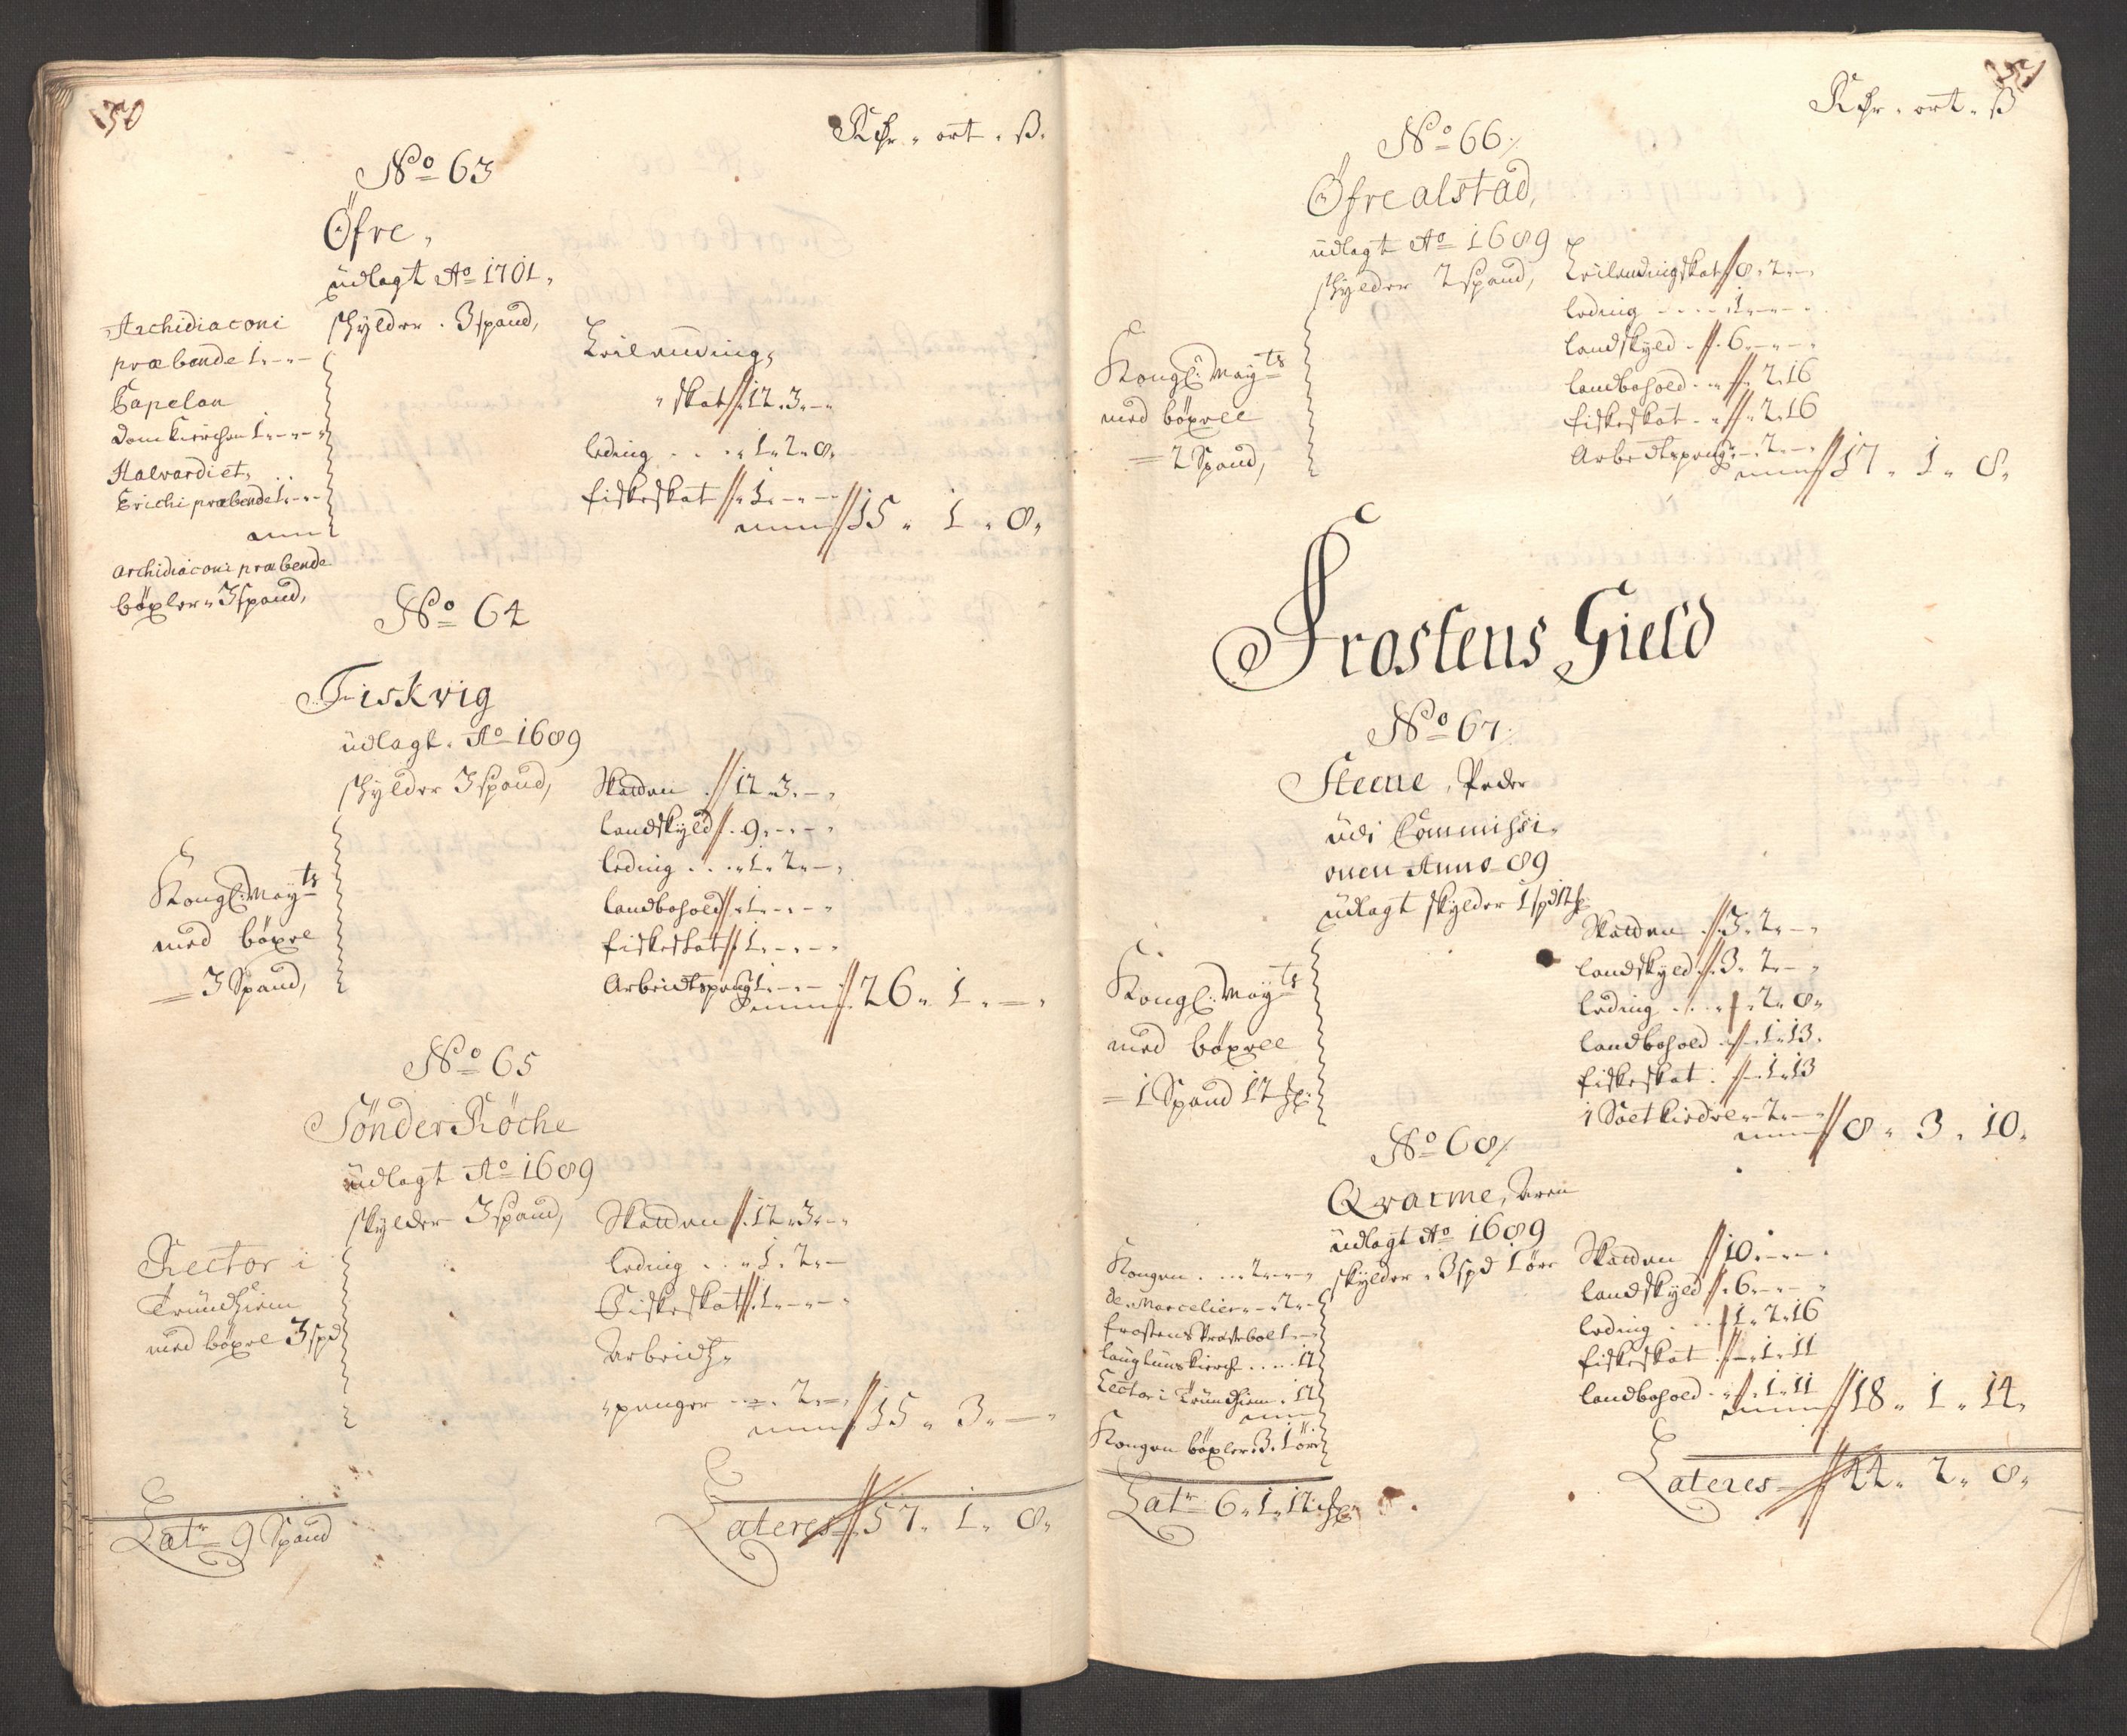 50
Rdr . ort . ß.
No 63
Öfre,
üdlagt Ao 1701,
skÿlder . 3 spand,
Archidiaconi
præbende 1.-.-
Capelan
Domkirchen 1.-.-
Halvardi et,
Erichi præbende 1.-.-
Archidiaconi præbende
böxler 3 spand,
Leilænding,
skat 12.3.-
leding . . . 1.2.8.
fiskeskat 1.-.-
15 . 1 . 8.
No 64
Fiskvig
üdlagt . Ao 1689
skÿlder 3 spand,
Kongl: Maÿts
med böxel
3 Spand,
Skatten 12.3.-
landskÿld . 9.-.-
leding . . . 1.2.-
landbohold 1.-.-
fiskeskat 1.-.-
Arbeidtspeng 1.-.-
26 . 1 . - .
No 65
Sönder Röche
üdlagt Ao 1689
skÿlder 3 spand,
Rector i
Trundhiem
med böxel 3 spd
Skatten 12.3.-
leding . . 1.2.-
Fiskeskat 1.-.-
Arbeidtz
penger - . 2.-
15 . 3 . -
Latr 9 Spand
Lateres 57 . 1 . 8.
51
Rdr . ort . ß
No 66
Öfre alstad,
üdlagt Ao 1689
skÿlder 2 spand,
Kongl: Maÿts
med böxell
2 Spand,
Leilendingskat 8.2.-
leding . . . . 1.-.-
landskÿld . 6.-.-
landbohold . . 2.16
fiskeskat . . 2.16
Arbedtspeng . 2.-
17 . 1 . 8.
Frostens Gield
No 67
Steene, Peder
udi Commissi,
onen Anno 89
üdlagt skÿlder 1 spd 12
Kongl: Maÿts
med böxell
1 Spand 12
Skatten . 3.2.-
landskÿld . 3.2.-
leding . . . 2.8.
landbohold . 1.13.
fiskeskat . 1.13
1 Soetkiedel . 2.-
8 . 3 . 10.
No 68
Qvarme, Aren
üdlagt Ao 1689
skÿlder . 3 spd 1 öre
Kongen . . . 2.-.-
de Marcelier . - . 2.-
frostens Præstebol 1.-
laügtuns kirche . . . . 12
Lector i Trundhiem . 12
Kongen böxler 3 . 1 öre
Skatten 10.-.-
landskÿld . 6.-.-
leding . . . 1.2.16
fiskeskat . 1.11
landbohold . . 1.11
18 . 1 . 14.
Latr 6.1.12
Lateres 44 . 2 . 8.